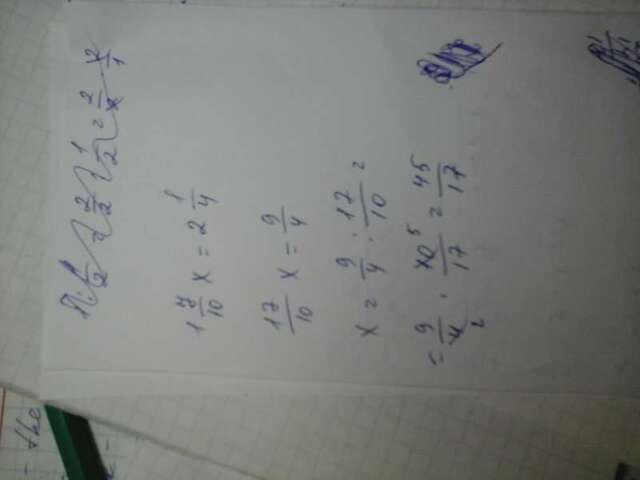 - the
1 7/10 x = 2 1/4
17/10 x = 9/4
x = 9/4 : 17/10 =
= 9/4 2 · 10 5/17 = 45/17